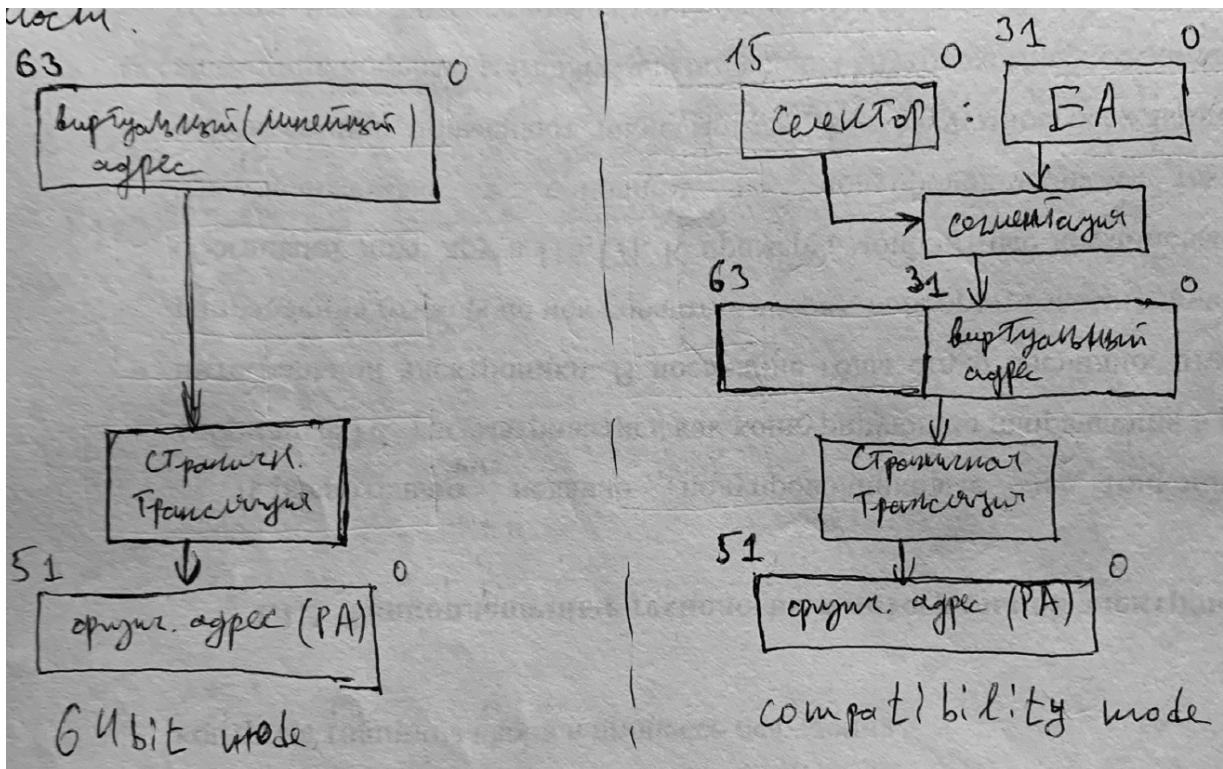 63 0
виртуальный (линейный)
адрес
страничн.
трансляция
51 0
физич. адрес (PA)
64bit mode
15 0 31 0
селектор : EA
сегментация
63 31 0
виртуальный
адрес
страничная
трансляция
51 0
физич. адрес (PA)
compatibility mode